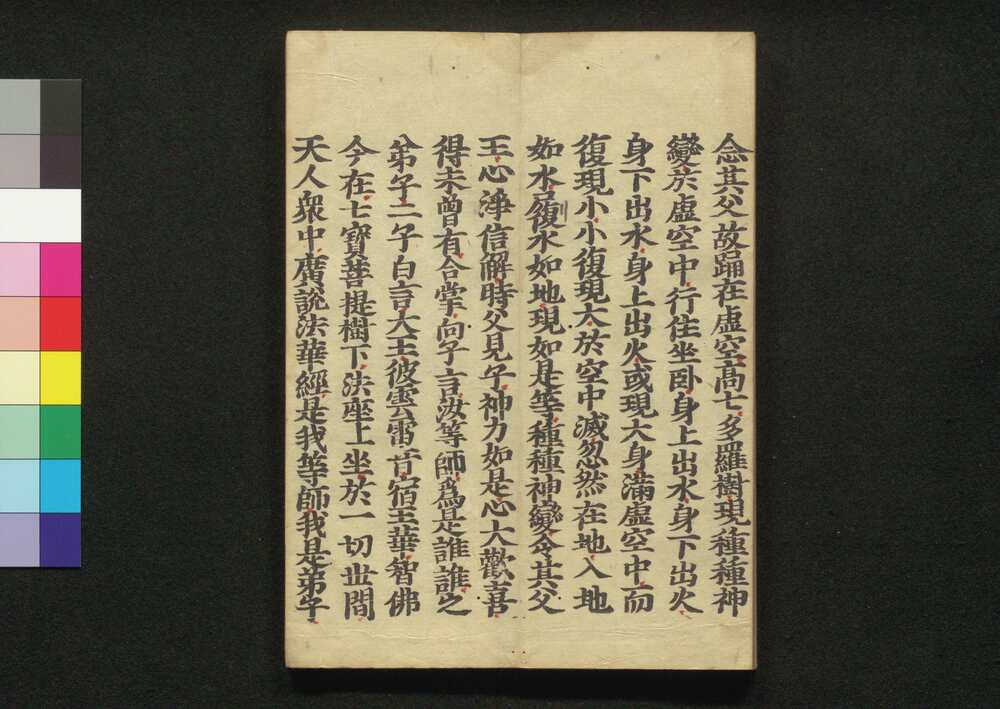 念其父故踊在虛空高七多羅樹現種種神
變於虛空中行住坐臥身上出水身下出火
身下出水身上出火或現大身滿虛空中而
復現小小復現大於空中滅忽然在地入地
如水履水如地現如是等種種神變令其父
王心淨信解時父見子神力如是心大歡喜
得未曾有合掌向子言汝等師爲是誰誰之
弟子二子白言大王彼雲雷音宿王華智佛
今在七寶菩提樹下法座上坐於一切世間
天人衆中廣說法華經是我等師我是弟子